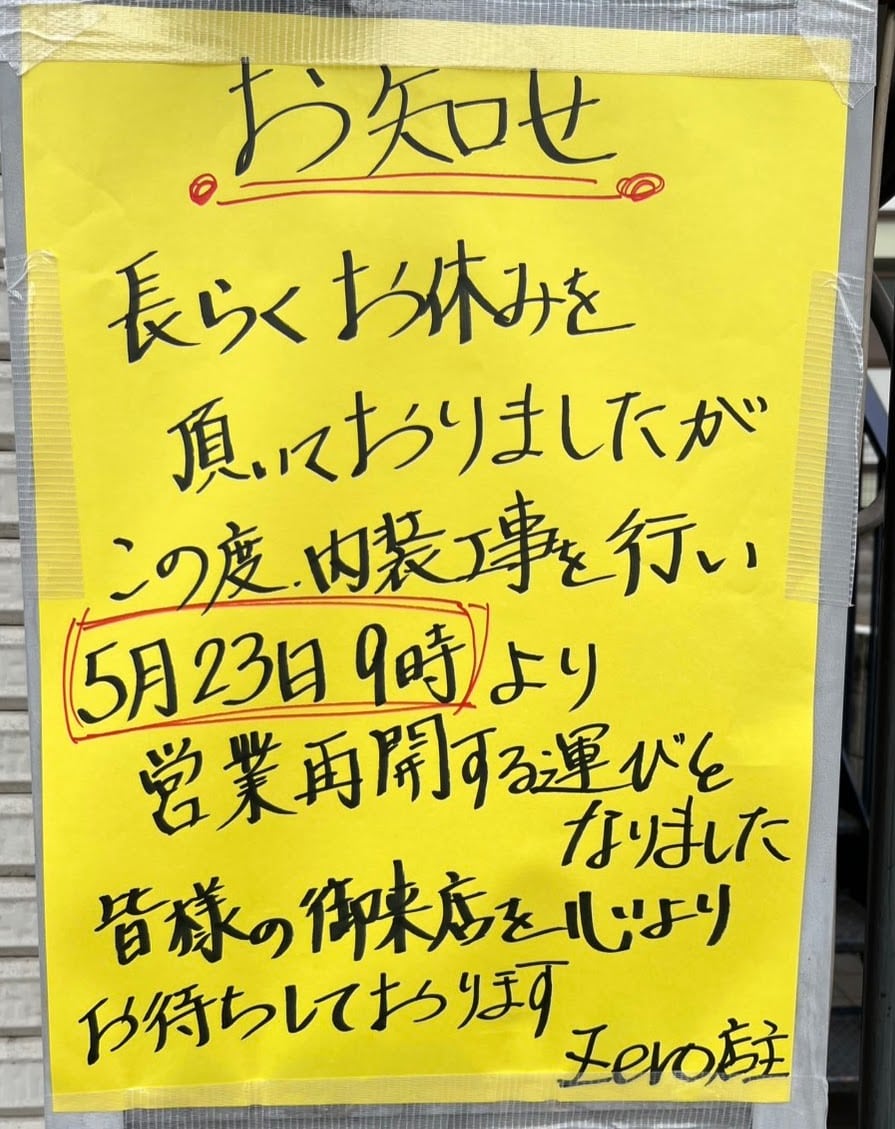 お知せ
長らくお休みを
頂いておりましたが
この度、内装工事を行い
5月23日9時より
営業再開する運びと
なりました
皆様の御来店を心より
お待ちしております
Zero店主